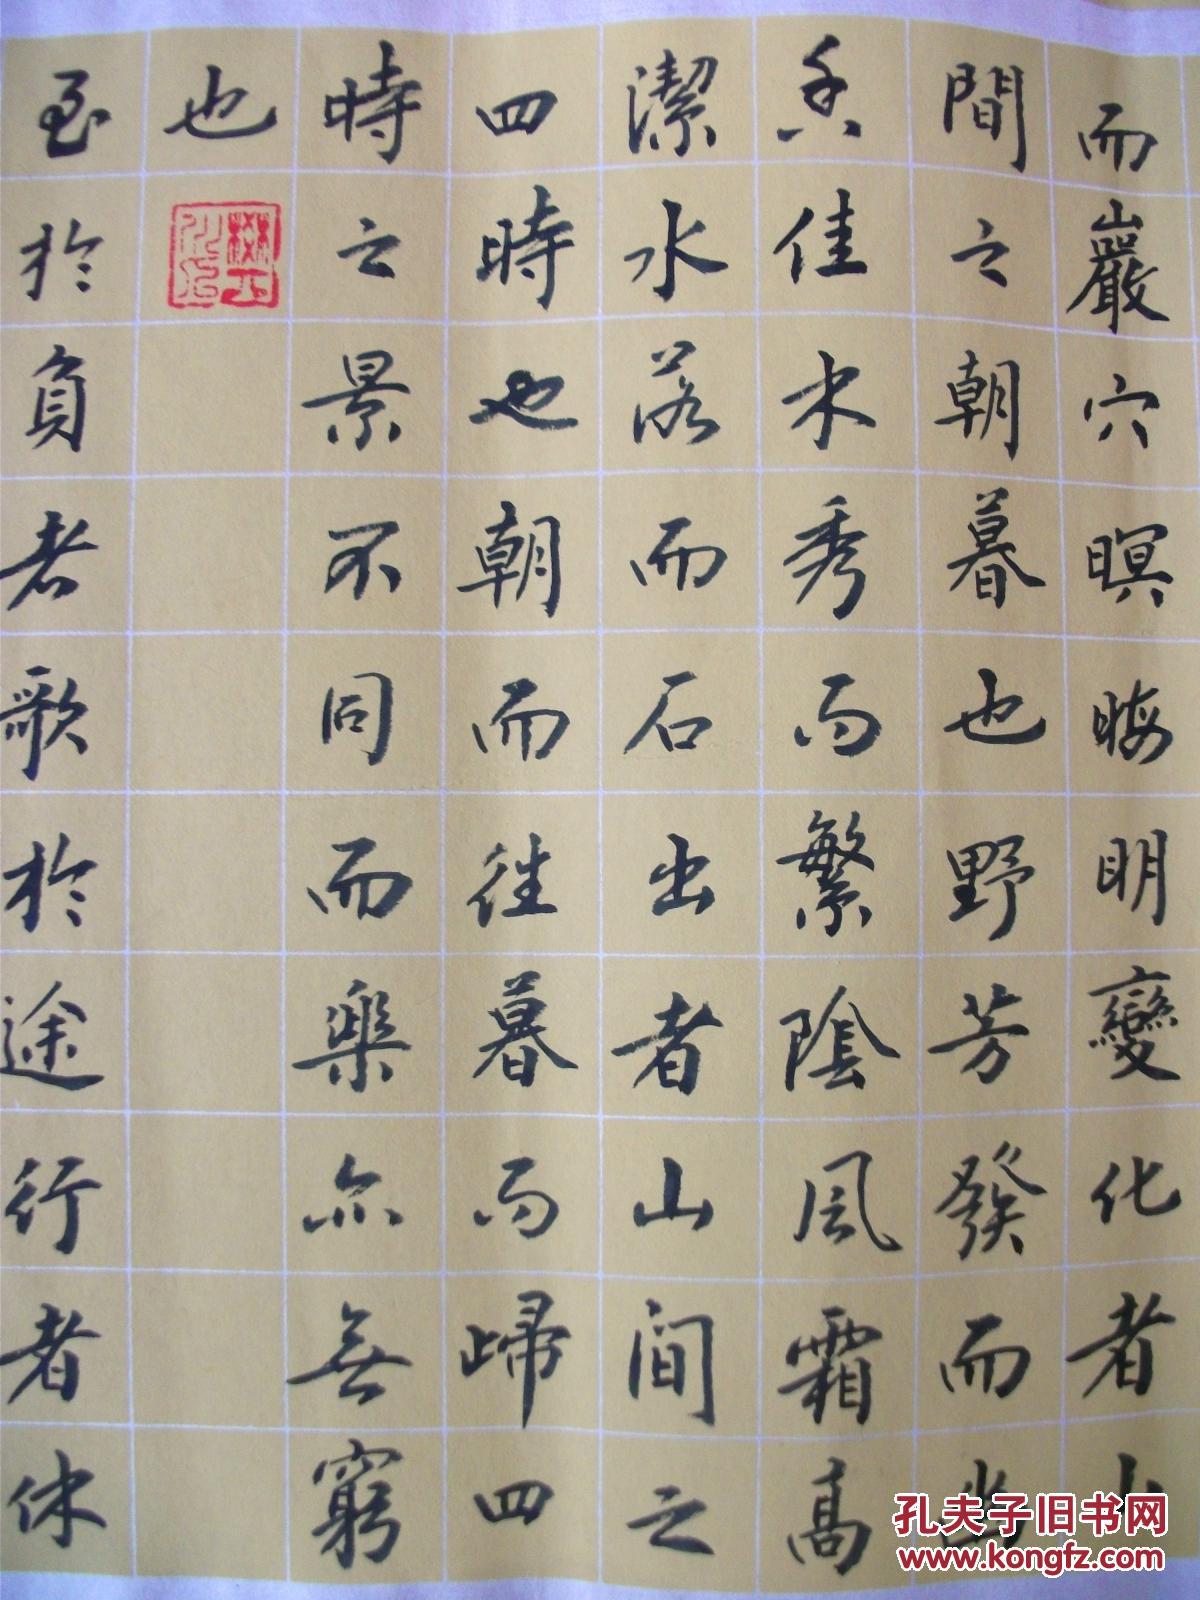 而巖穴暝晦明變化者山
間之朝暮也野芳發而幽
香佳木秀而繁陰風霜高
潔水落而石出者山間之
四時也朝而往暮而歸四
時之景不同而樂亦無窮
也
至於負者歌於途行者休
孔夫子旧书网
www.kongfz.com